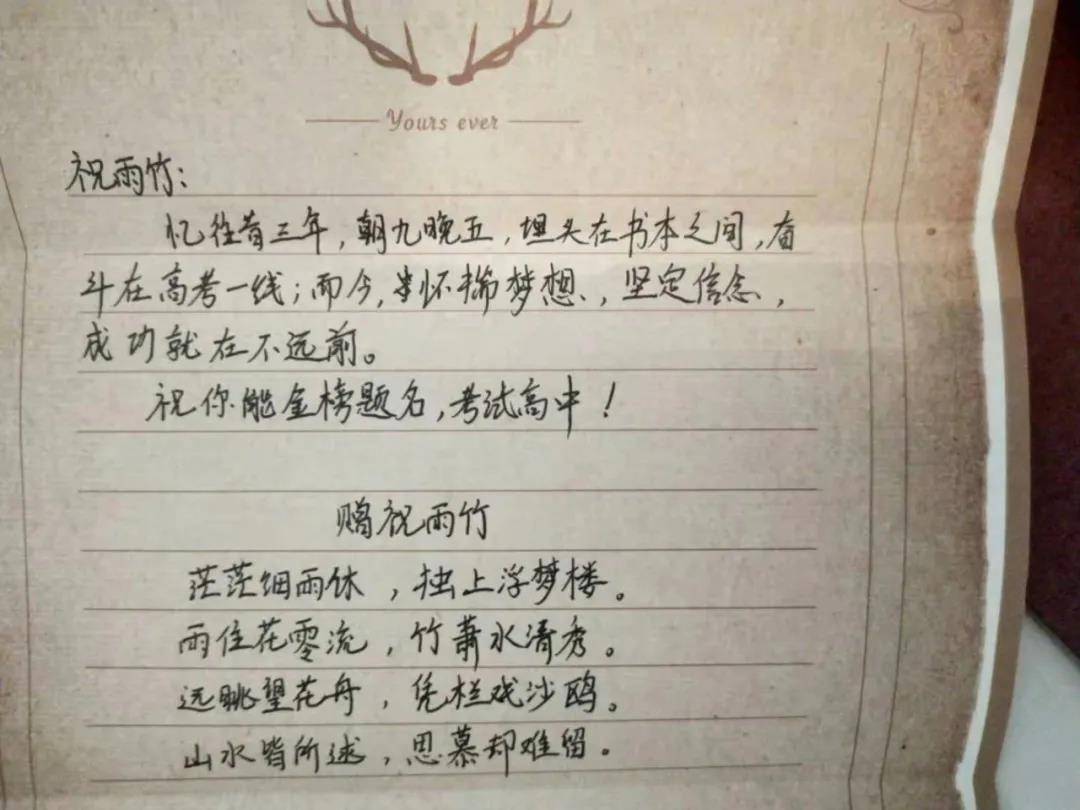 Yours ever
祝雨竹：
忆往昔三年，朝九晚五，埋头在书本之间，奋
斗在高考一线；而今，怀揣梦想，坚定信念，
成功就在不远前。
祝你能金榜题名，考试高中！
赠祝雨竹
茫茫细雨休，独上浮梦楼。
雨住花零流，竹萧水清秀。
远眺望花舟，凭栏戏沙鸥。
山水皆所述，思慕却难留。